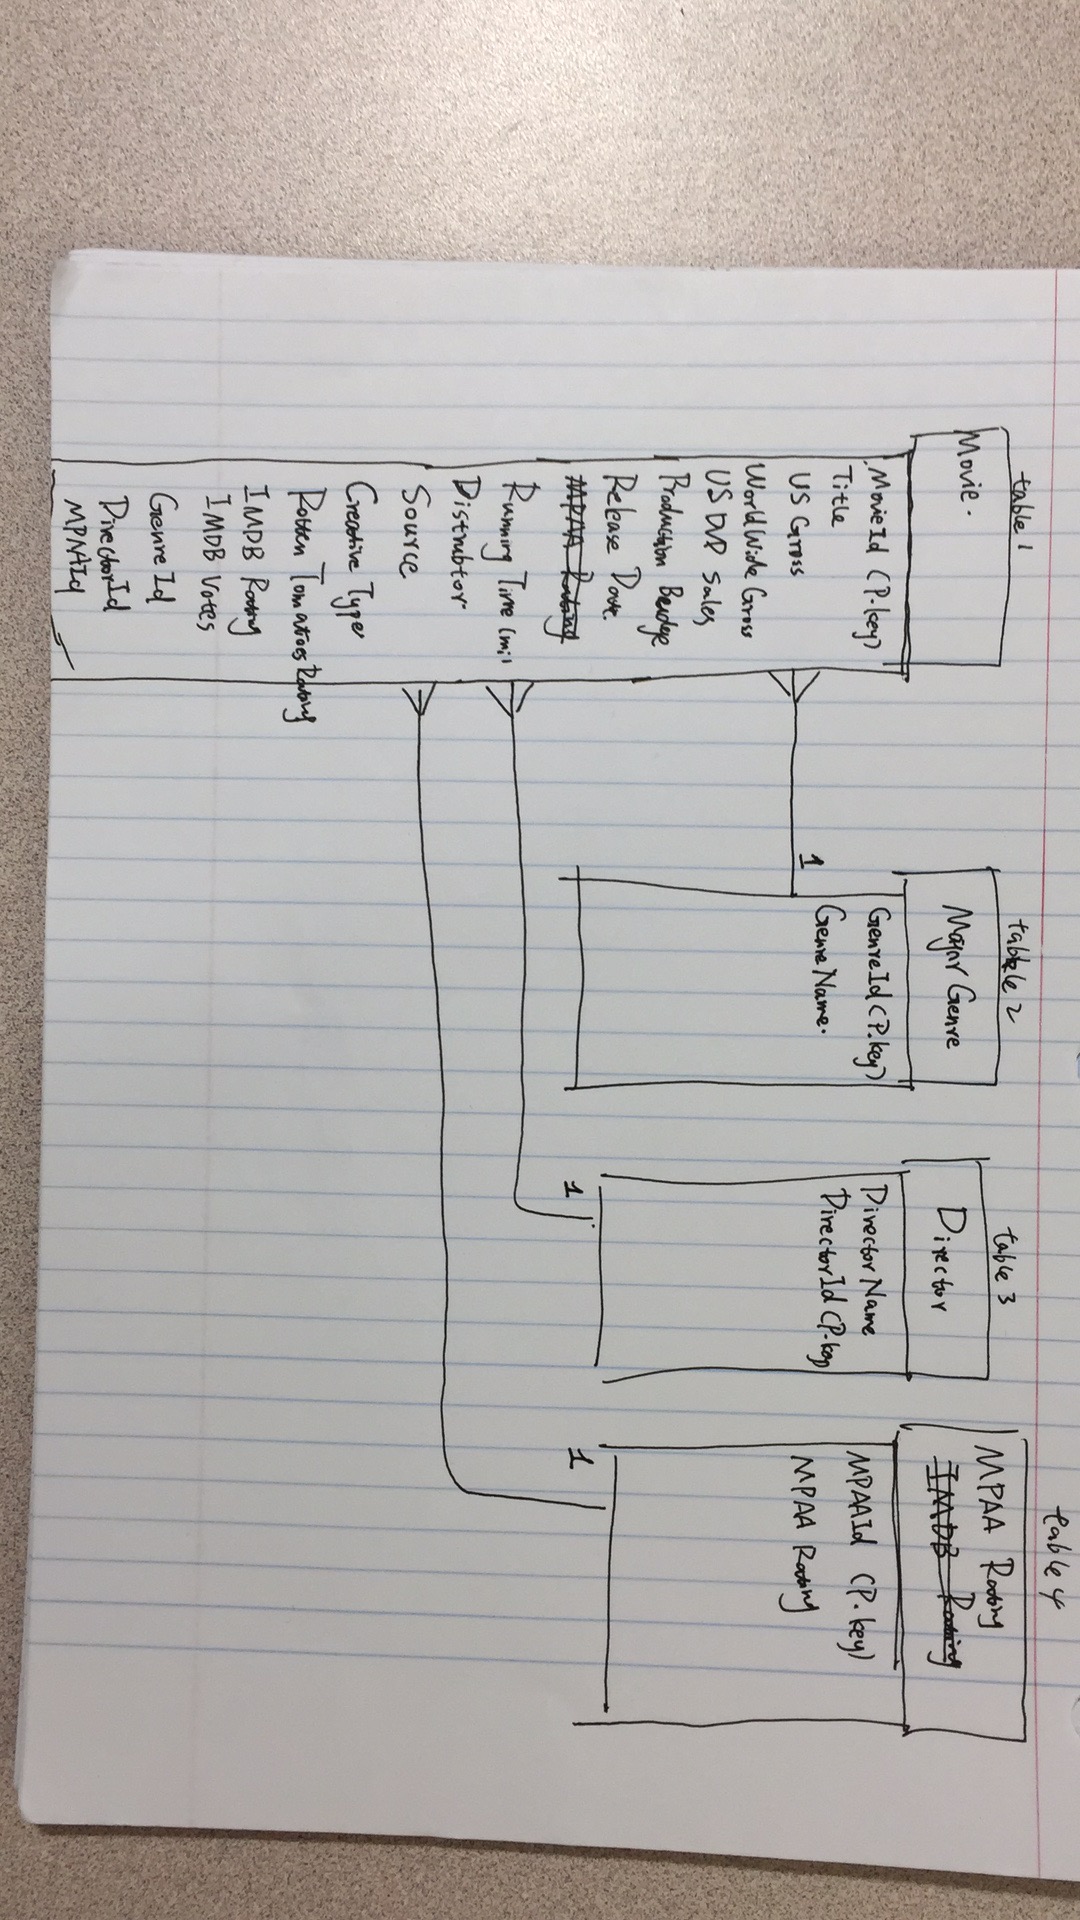 table 1
Movie.
MovieId (P.key)
Title
US Gross
WorldWide Gross
US DVD Sales
Production Budge
Release Date.
MPAA Rating
Running Time (mi)
Distributor
Source
Creative Type
Rotten Tomatoes Rating
IMDB Rating
IMDB Votes
GenreId
DirectorId
MPAAId
table 2
Major Genre
GenreId (P.key)
GenreName.
1
table 3
Director
DirectorName
DirectorId (P.key
1
table 4
MPAA Rating
IMDB Rating
MPAAId (P.key)
MPAA Rating
1